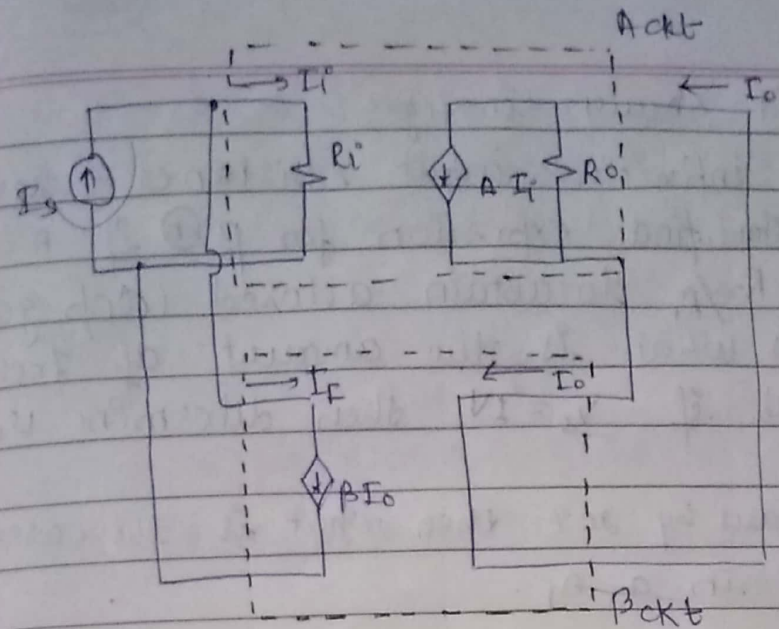 A ckt
Ii
Io
Is
Ri
A Ii
Ro
IF
Io
βIo
βckt